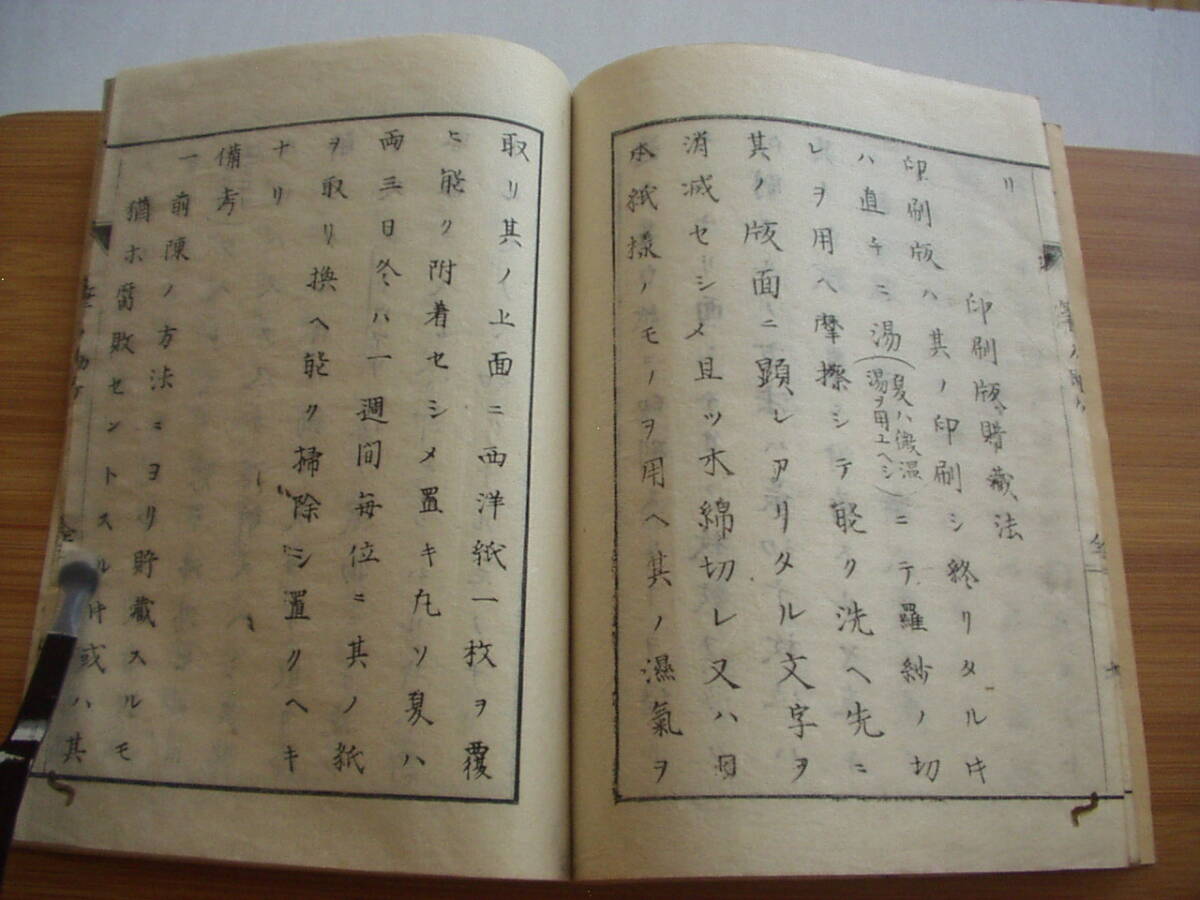 リ
印刷版貯藏法
印刷版ハ其ノ印刷シ終リタルキ
ハ直チニ湯(夏ハ微温湯ヲ用ユヘシ)ニテ羅紗ノ切
レヲ用ヘ摩擦シテ能ク洗ヘ先ニ
其ノ版面ニ顕レアリタル文字ヲ
消滅セシメ且ツ木綿切レ又ハ日
本紙様ノモノヲ用ヘ其ノ濕氣ヲ
取リ其ノ上面ニ西洋紙一枚ヲ覆
ヒ能ク附着セシメ置キ凡ソ夏ハ
両三日冬ハ一週間毎位ニ其ノ紙
ヲ取リ換ヘ能ク掃除シ置クヘキ
ナリ
備考
一前陳ノ方法ニヨリ貯藏スルモ
猶ホ腐敗セントスルキ或ハ其